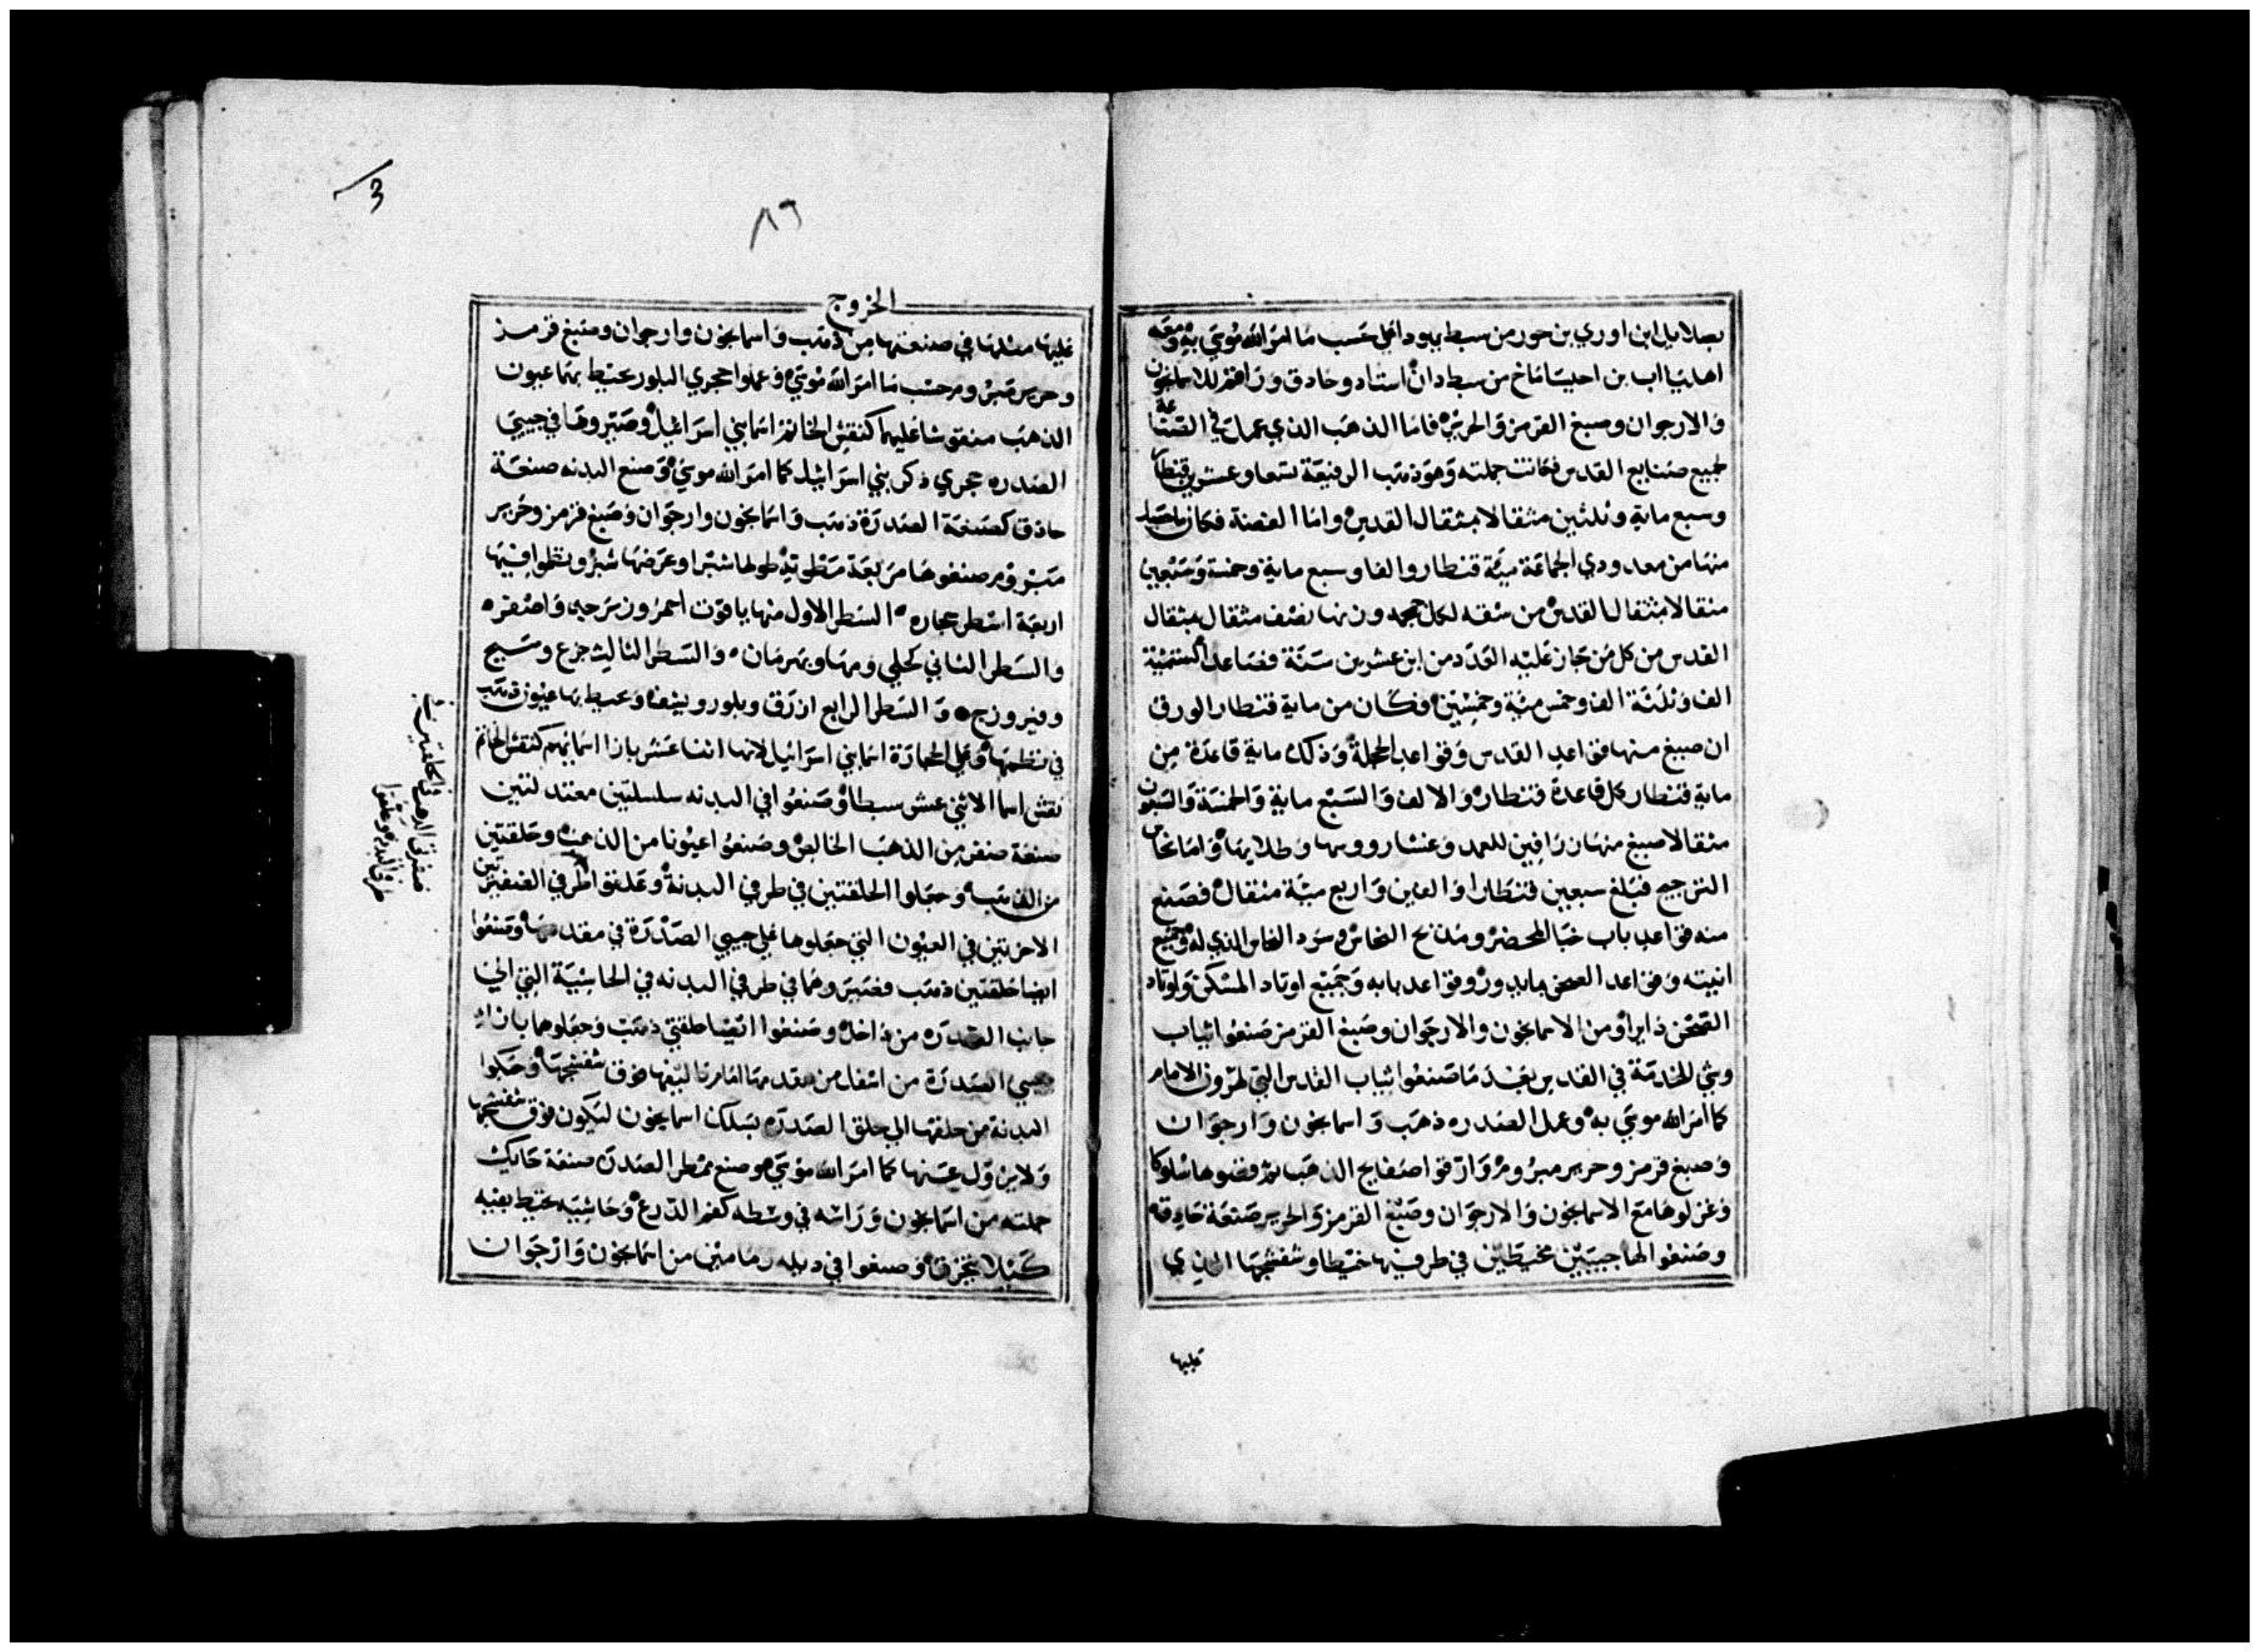 بصلايل ابن اوري بن حور من سبط يهودا علي حسب ما امر الله موسي به ومعه
اهاليا اب بن احيساماخ من سبط دان استاد وحادق وراقم للاسمانجون
والارجوان وصبغ القرمز والحرير فاما الذهب الذي عمل في الصناعة
لجميع صنايع القدس فكانت جملته وهو ذهب الرفيعة تسعا وعشرين قنطارا
وسبع ماية وثلثين مثقالا بمثقال القدس واما الفضة فكان ماحصل
منها من معدودي الجماعة مية قنطار والفا وسبع ماية وخمسة وسبعين
مثقالا بمثقال القدس من سقه لكل جمجمه وزنها نصف مثقال بمثقال
القدس من كل من جاز عليه العدد من ابن عشرين سنة فصاعدا لستمية
الف وثلثة الف وخمس مية وخمسين فكان من ماية قنطار الورق
ان صيغ منها قواعد القدس وقواعد الحجلة وذلك ماية قاعدة من
ماية قنطار كل قاعدة قنطار والالف والسبع ماية والخمسة والسبعون
مثقالا صيغ منها زرافين للعمد وغشا رووسها وطلايها واما نحاس
الترجيح فبلغ سبعين قنطارا والفين واربع مية مثقال فصنع
منه قواعد باب خبا المحضر ومذبح النحاس وسرد النحاس الذي له وجميع
انيته وقواعد الصحن مايدور وقواعد بابه وجميع اوتاد المسكن واوتاد
الصحن دايرا ومن الاسمانجون والارجوان وصبغ القرمز صنعوا ثياب
وشي للخدمة في القدس بعد ما صنعوا ثياب القدس التي لهرون الامام
كما امر الله موسي به وعمل الصدره ذهب واسمانجون وارجوان
وصبغ قرمز وحرير مبز ومزوارقوا صفايح الذهب ثم قضوها سلوكا
وغزلوها مع الاسمانجون والارجوان وصبغ القرمز والحرير صنعة حادقه
وصنعوا لها جيبين مخيطين في طرفيها خيطا وشفشجها الذي
عليها
٨٦
الخروج
عليها مثلها في صنعتها من ذهب واسمانجون وارجوان وصبغ قرمز
وحرير مبز ومر حسب ما امر الله موسي وعملوا حجري البلور تحيط بهما عيون
الذهب منقوشا عليهما كنقش الخاتم اسما بني اسراييل وصيروها في جيبي
الصدره حجري ذكر بني اسراييل كما امر الله موسي وصنع البدنه صنعة
حادق كصنعة الصدرة ذهب واسمانجون وارجوان وصبغ قرمز وحرير
مبز ومر صنعوها مربعة مطوية طولها شبرا وعرضها شبر ونظموا فيها
اربعة اسطر حجاره السطر الاول منها ياقوت احمر وزبرجد واصفره
والسطر الثاني كحلي ومها وبهرمان والسطر الثالث جزع وسبج
وفيروزج والسطر الرابع ازرق وبلور ويشفه وتحيط بها عيون ذهب
في نظمها وعلي الحجارة اسما بني اسراييل لانها اثنا عشر بازا اسمايهم كنقش الخاتم
نقش اسما الاثني عشر سبطا وصنعوا في البدنه سلسلتين معتدلتين
صنعة ضفر من الذهب الخالص وصنعوا عيونا من الذهب وحلقتين
من الذهب وجعلوا الحلقتين في طرفي البدنة وعلقوا طرفي الضفيرتين
الاخرتين في العيون التي جعلوها علي جيبي الصدرة في مقدمها وصنعوا
ايضا حلقتين ذهب فصيروهما في طرفي البدنه في الحاشية التي الي
جانب الصدره من داخل وصنعوا ايضا حلقتي ذهب وجعلوها بازا
جيبي الصدرة من اسفل من مقدمها الما رتاليفها فوق شفشجها وحبكوا
البدنة من حلقها الي حلق الصدره بسلك اسمانجون لتكون فوق شفشجها
ولايزول عنها كما امر الله موسي وصنع ممطر الصدرة صنعة حايك
جملته من اسمانجون وراسه في وسطه كفم الدرع وحاشيه تحيط بفيه
كيلا يتخرق وصنعوا في ديله رمامين من اسمانجون وارجوان
ضفرتي الذهب في الحلقتين في
طرفي البدنه وعلقوا